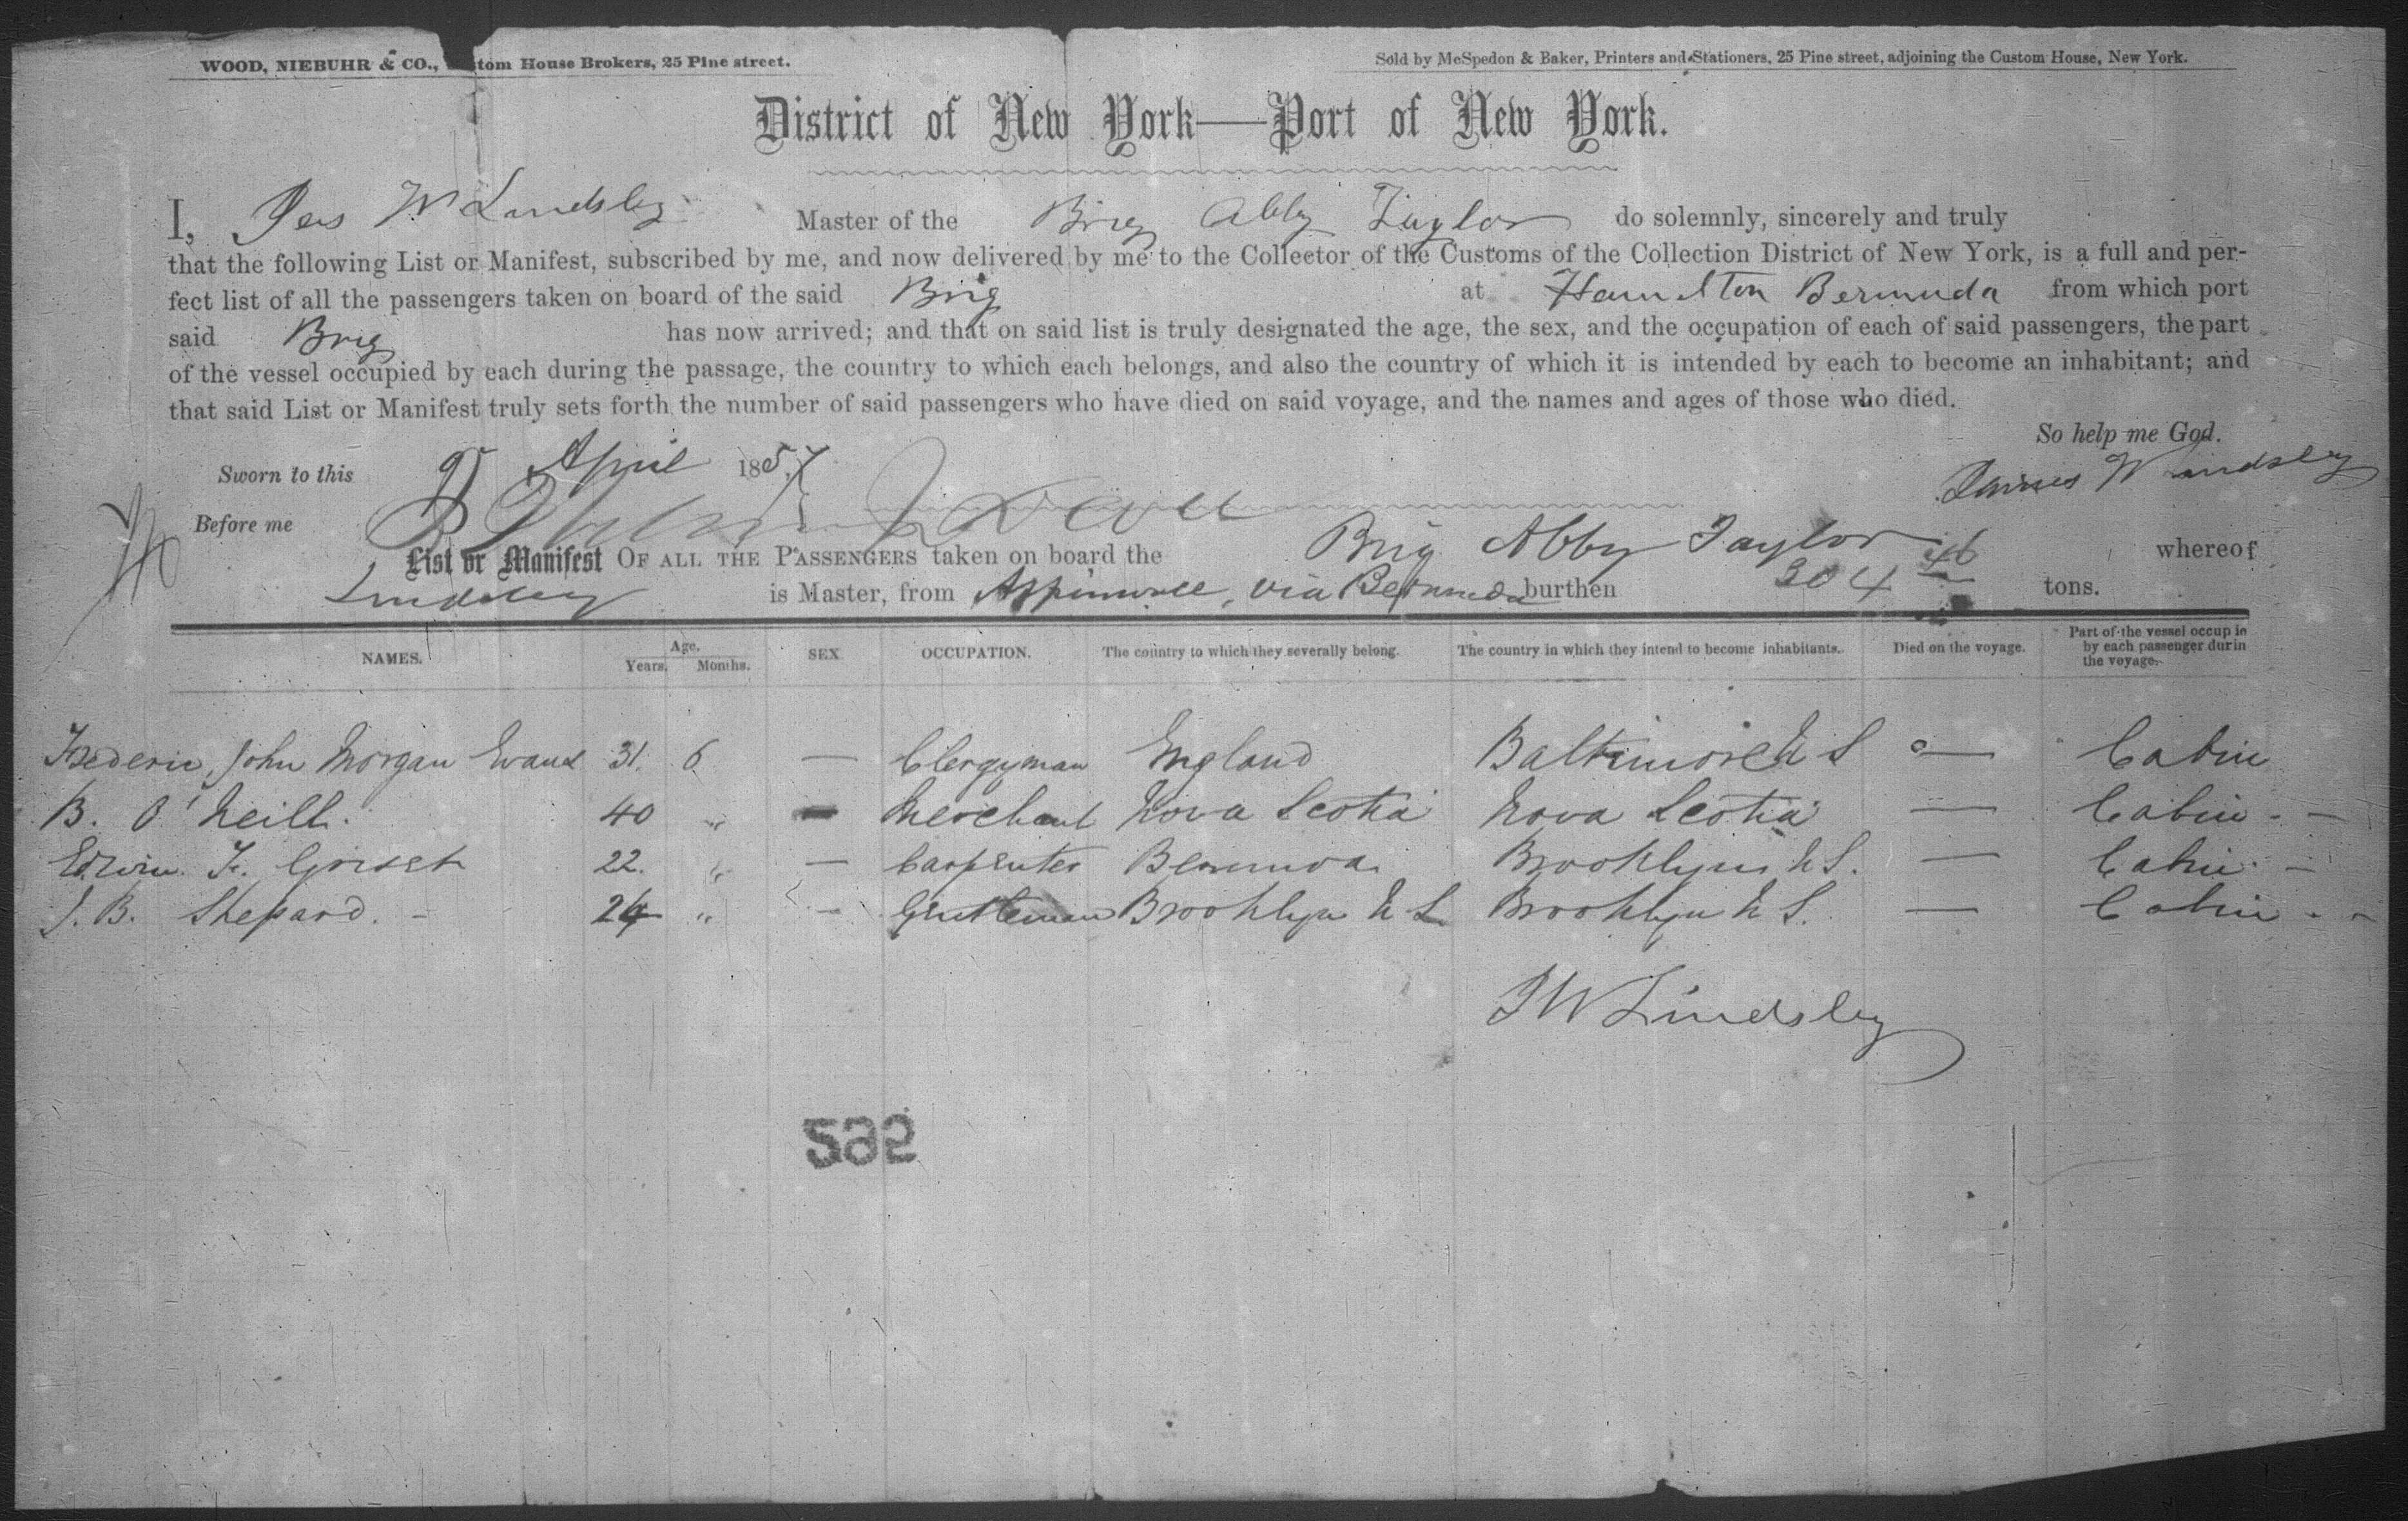 WOOD, NIEBUHR & CO., tom House Brokers, 25 Pine street.
Sold by McSpedon & Baker, Printers and Stationers, 25 Pine street, adjoining the Custom House, New York.
District of New York—Port of New York.
I, Jas W Lindsley Master of the Brig Abby Taylor do solemnly, sincerely and truly
that the following List or Manifest, subscribed by me, and now delivered by me to the Collector of the Customs of the Collection District of New York, is a full and per-
fect list of all the passengers taken on board of the said Brig at Hamilton Bermuda from which port
said Brig has now arrived; and that on said list is truly designated the age, the sex, and the occupation of each of said passengers, the part
of the vessel occupied by each during the passage, the country to which each belongs, and also the country of which it is intended by each to become an inhabitant; and
that said List or Manifest truly sets forth the number of said passengers who have died on said voyage, and the names and ages of those who died.
So help me God.
Sworn to this 9 April 1857 James W Lindsley
Before me
List or Manifest OF ALL THE PASSENGERS taken on board the Brig Abby Taylor whereof
Lindsley is Master, from Aspinwall, via Bermuda burthen 304 46 tons.
NAMES. Age. Years. Months. SEX. OCCUPATION. The country to which they severally belong. The country in which they intend to become inhabitants. Died on the voyage. Part of the vessel occup in by each passenger durin the voyage.
Frederic, John Morgan Evans 31. 6 — Clergyman England Baltimore U S — Cabin
B. O'Neill. 40 " — Merchant Nova Scotia Nova Scotia — Cabin - -
Edwin F. Griset 22. " — Carpenter Bermuda. Brooklyn U S. — Cabin -
J. B. Shepard. - 24 " — Gentleman Brooklyn U S. Brooklyn U S. — Cabin - -
J W Lindsley
592